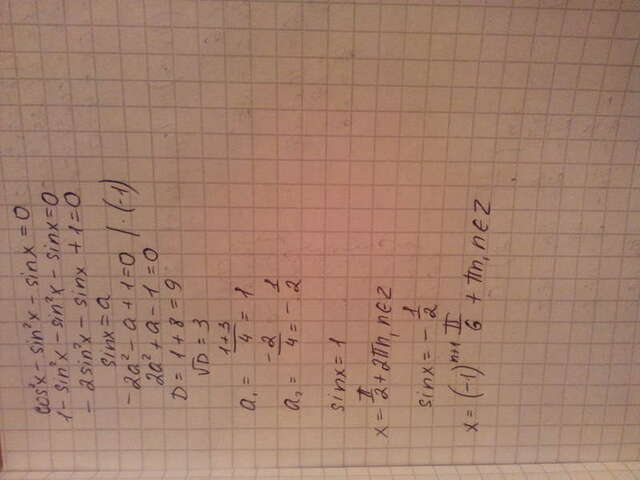 cos²x - sin²x - sinx = 0
1 - sin²x - sin²x - sinx = 0
- 2sin²x - sinx + 1 = 0
sinx = a
-2a² - a + 1 = 0 / · (-1)
2a² + a - 1 = 0
D = 1 + 8 = 9
√D = 3
a₁ = (1+3)/4 = 1
a₂ = -2/4 = -1/2
sinx = 1
x = π/2 + 2πn, n∈Z
sinx = -1/2
x = (-1)ⁿ⁺¹ π/6 + πn, n∈Z